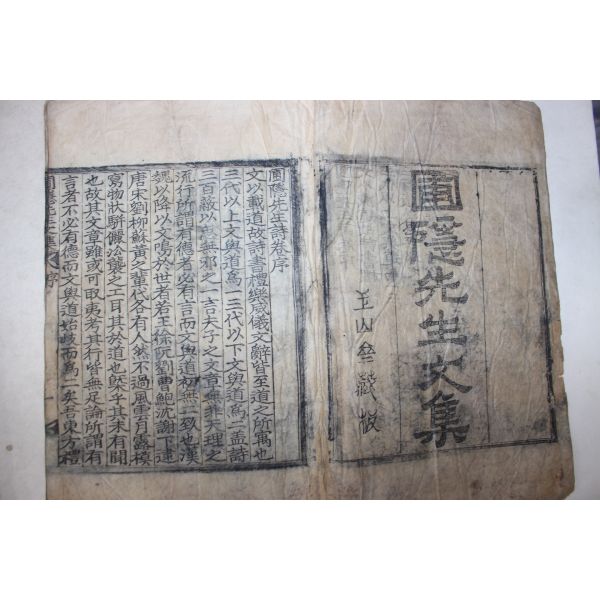 圃隱先生文集
玉山藏板
圃隱先生詩卷序
文以載道故詩書禮樂威儀文辭皆至道之所寓也
三代以上文與道爲一三代以下文與道爲二盖詩
三百蔽以思無邪之一言夫子之文章無非天理之
流行所謂有德者必有言而文與道初無二致也漢
魏以降以文鳴於世者若王徐阮劉曹鮑沈謝下逮
唐宋劉柳蘇黃之輩代各有人然不過風雲月露模
寫物狀騈儷沿襲之工耳其於道也槩乎其未有聞
也故其文章雖或可取夷考其行皆無足論所謂有
言者不必有德而文與道始歧而爲二矣吾東方禮
序